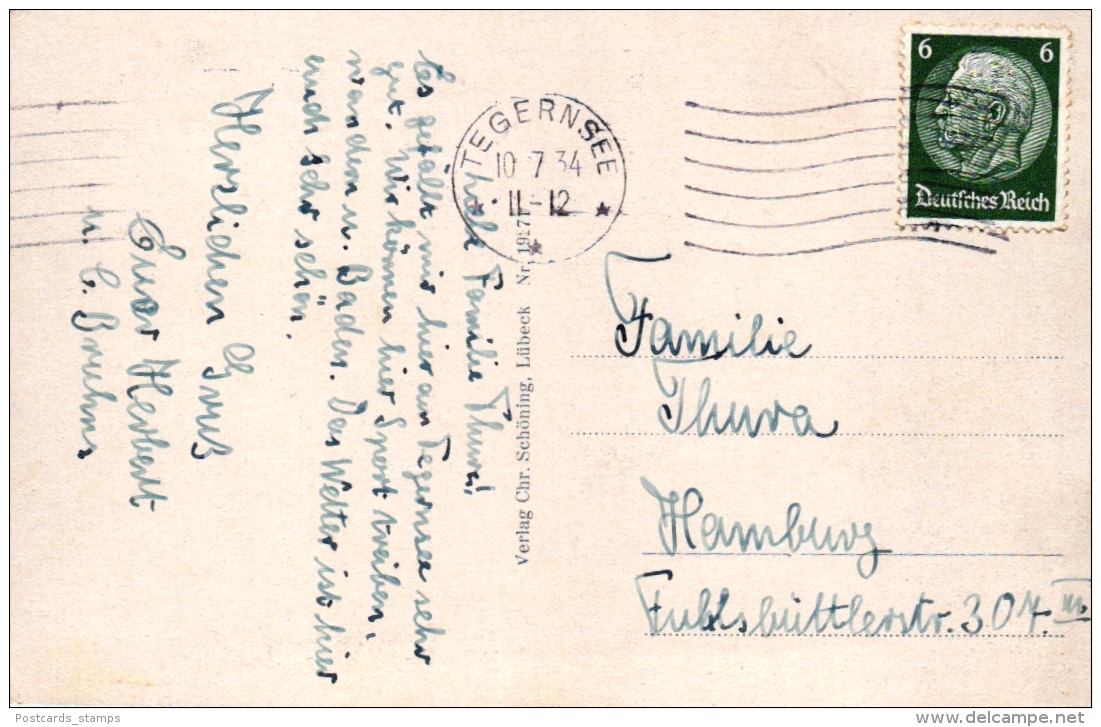 Liebe Familie Thura!
Es gefällt mir hier am Tegernsee sehr
gut. Wir können hier Sport treiben,
wandern u. Baden. Das Wetter ist hier
auch sehr schön.
Herzlichen Gruß
Euer Herbert
u. C. Bruhns
TEGERNSEE
10.7.34
11-12
6 6
Deutsches Reich
Verlag Chr. Schöning, Lübeck Nr. 1927
Familie
Thura
Hamburg
Fuhlsbüttlerstr. 307. III.
Postcards_stamps
www.delcampe.net